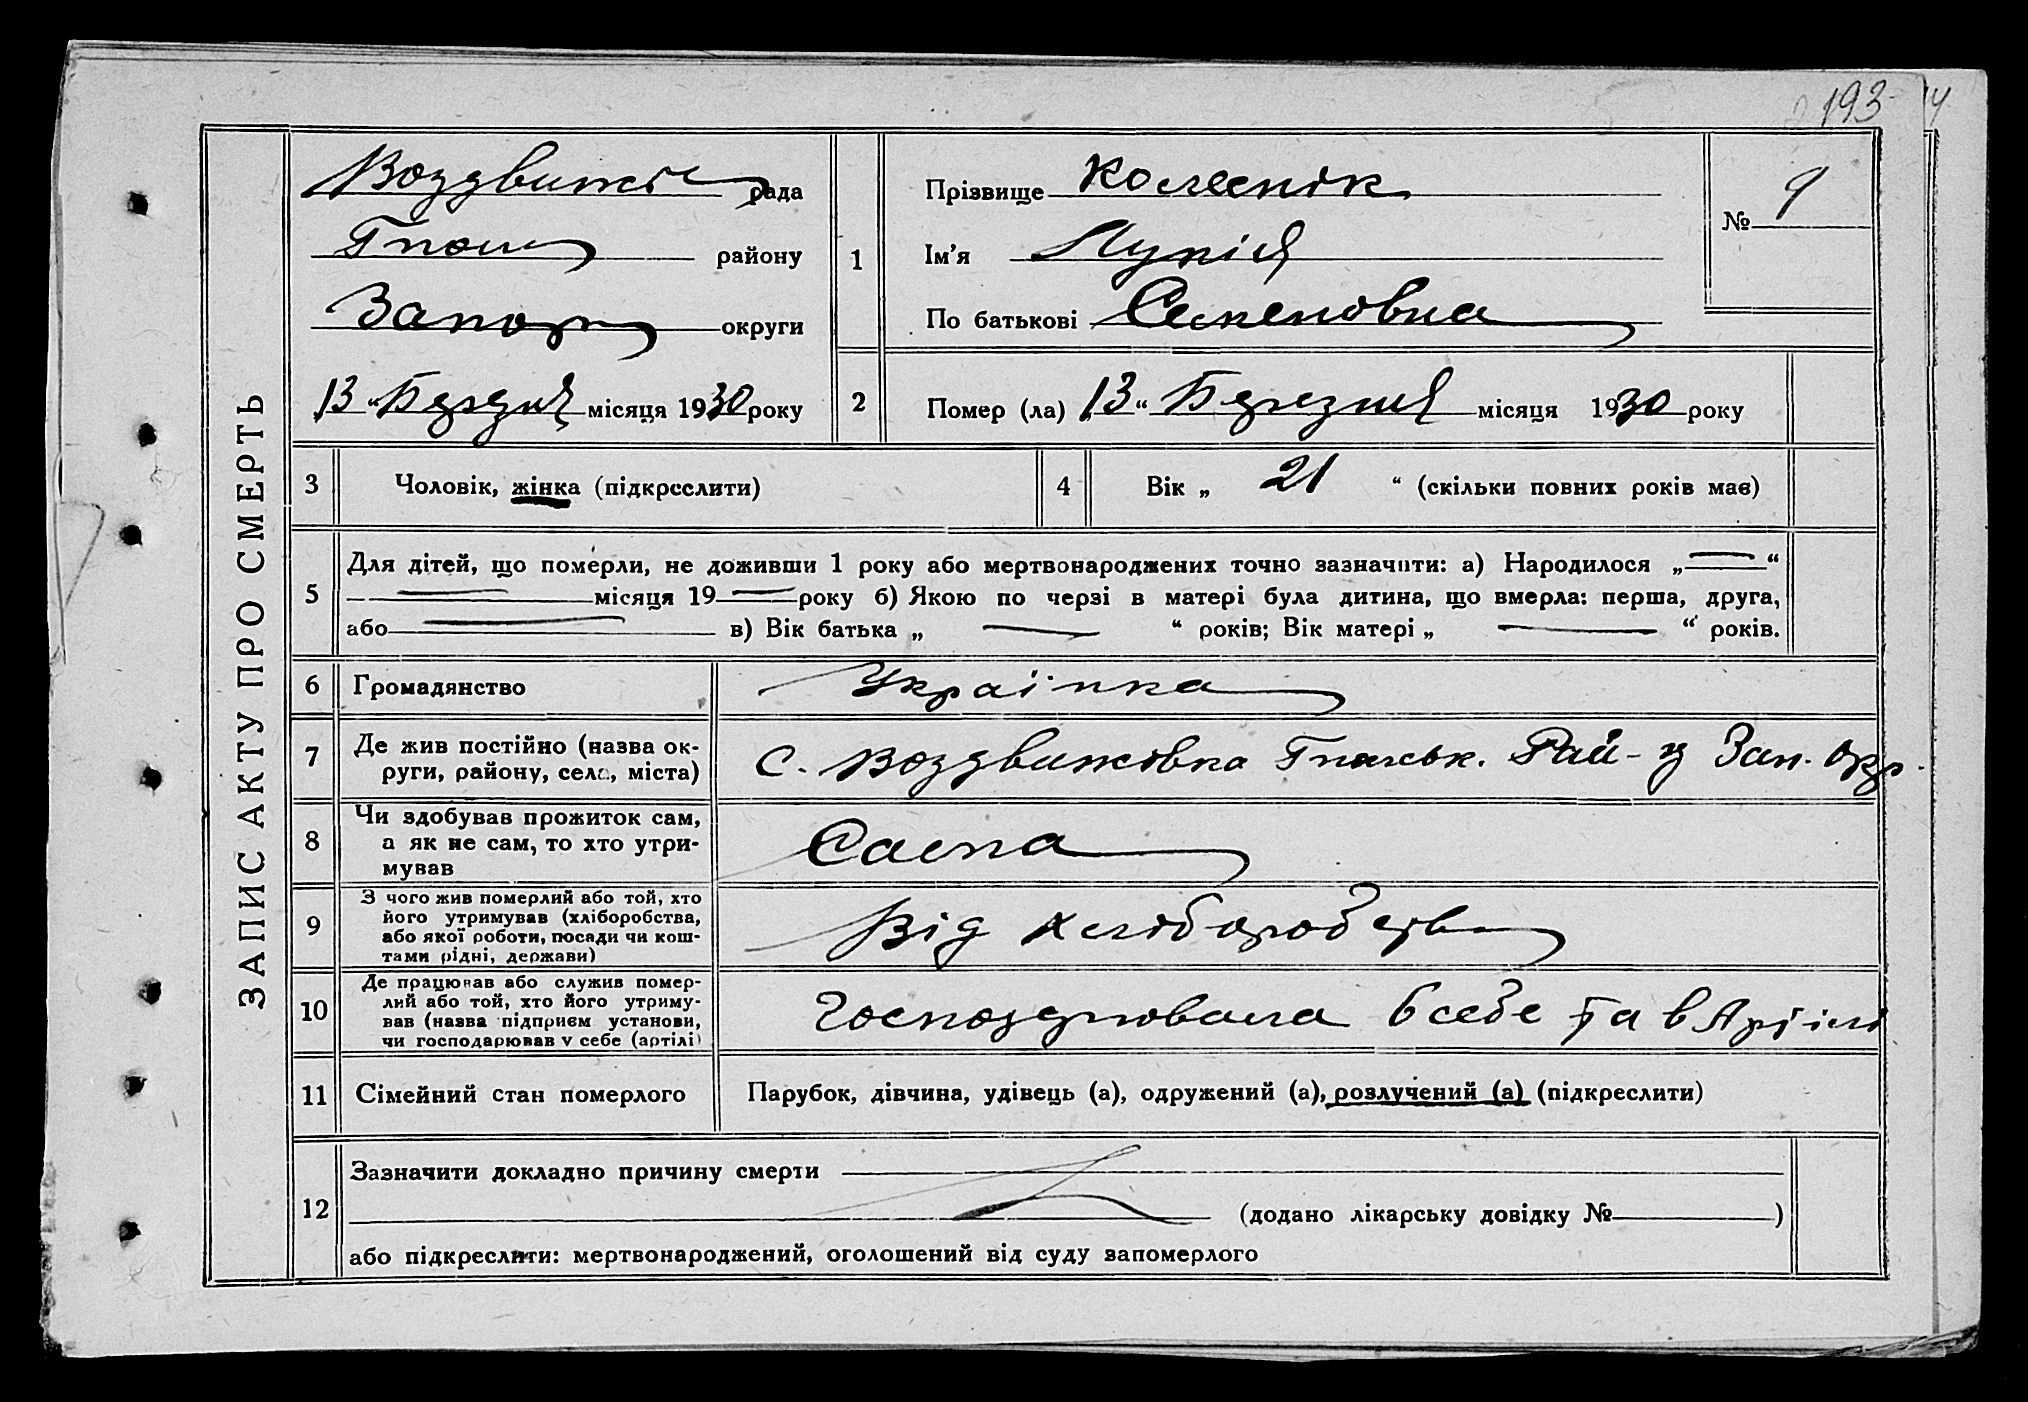 193
ЗАПИС АКТУ ПРО СМЕРТЬ
Воздвижів рада
району
Запор округи
13 “ Березня місяця 1930 року
1
Прізвище Колеснік
Ім'я Лукія
По батькові Семеновна
№ 9
2
Помер (ла) 13 “ Березня місяця 1930 року
3
Чоловік, жінка (підкреслити)
4
Вік „ 21 “ (скільки повних років має)
5
Для дітей, що померли, не доживши 1 року або мертвонароджених точно зазначити: а) Народилося „ “
місяця 19 року б) Якою по черзі в матері була дитина, що вмерла: перша, друга,
або в) Вік батька „ “ років; Вік матері „ “ років.
6
Громадянство
Українка
7
Де жив постійно (назва ок-
руги, району, села, міста)
С. Воздвиживка Рай-у Зап. Окр.
8
Чи здобував прожиток сам,
а як не сам, то хто утри-
мував
Сама
9
З чого жив померлий або той, хто
його утримував (хліборобства,
або якої роботи, посади чи кош-
тами рідні, держави)
Від хліборобств
10
Де працював або служив помер-
лий або той, хто його утриму-
вав (назва підприєм установи,
чи господарював у себе (артілі)
Господарювала в себе та в Артілі
11
Сімейний стан померлого
Парубок, дівчина, удівець (а), одружений (а), розлучений (а) (підкреслити)
12
Зазначити докладно причину смерти
(додано лікарську довідку № )
або підкреслити: мертвонароджений, оголошений від суду запомерлого